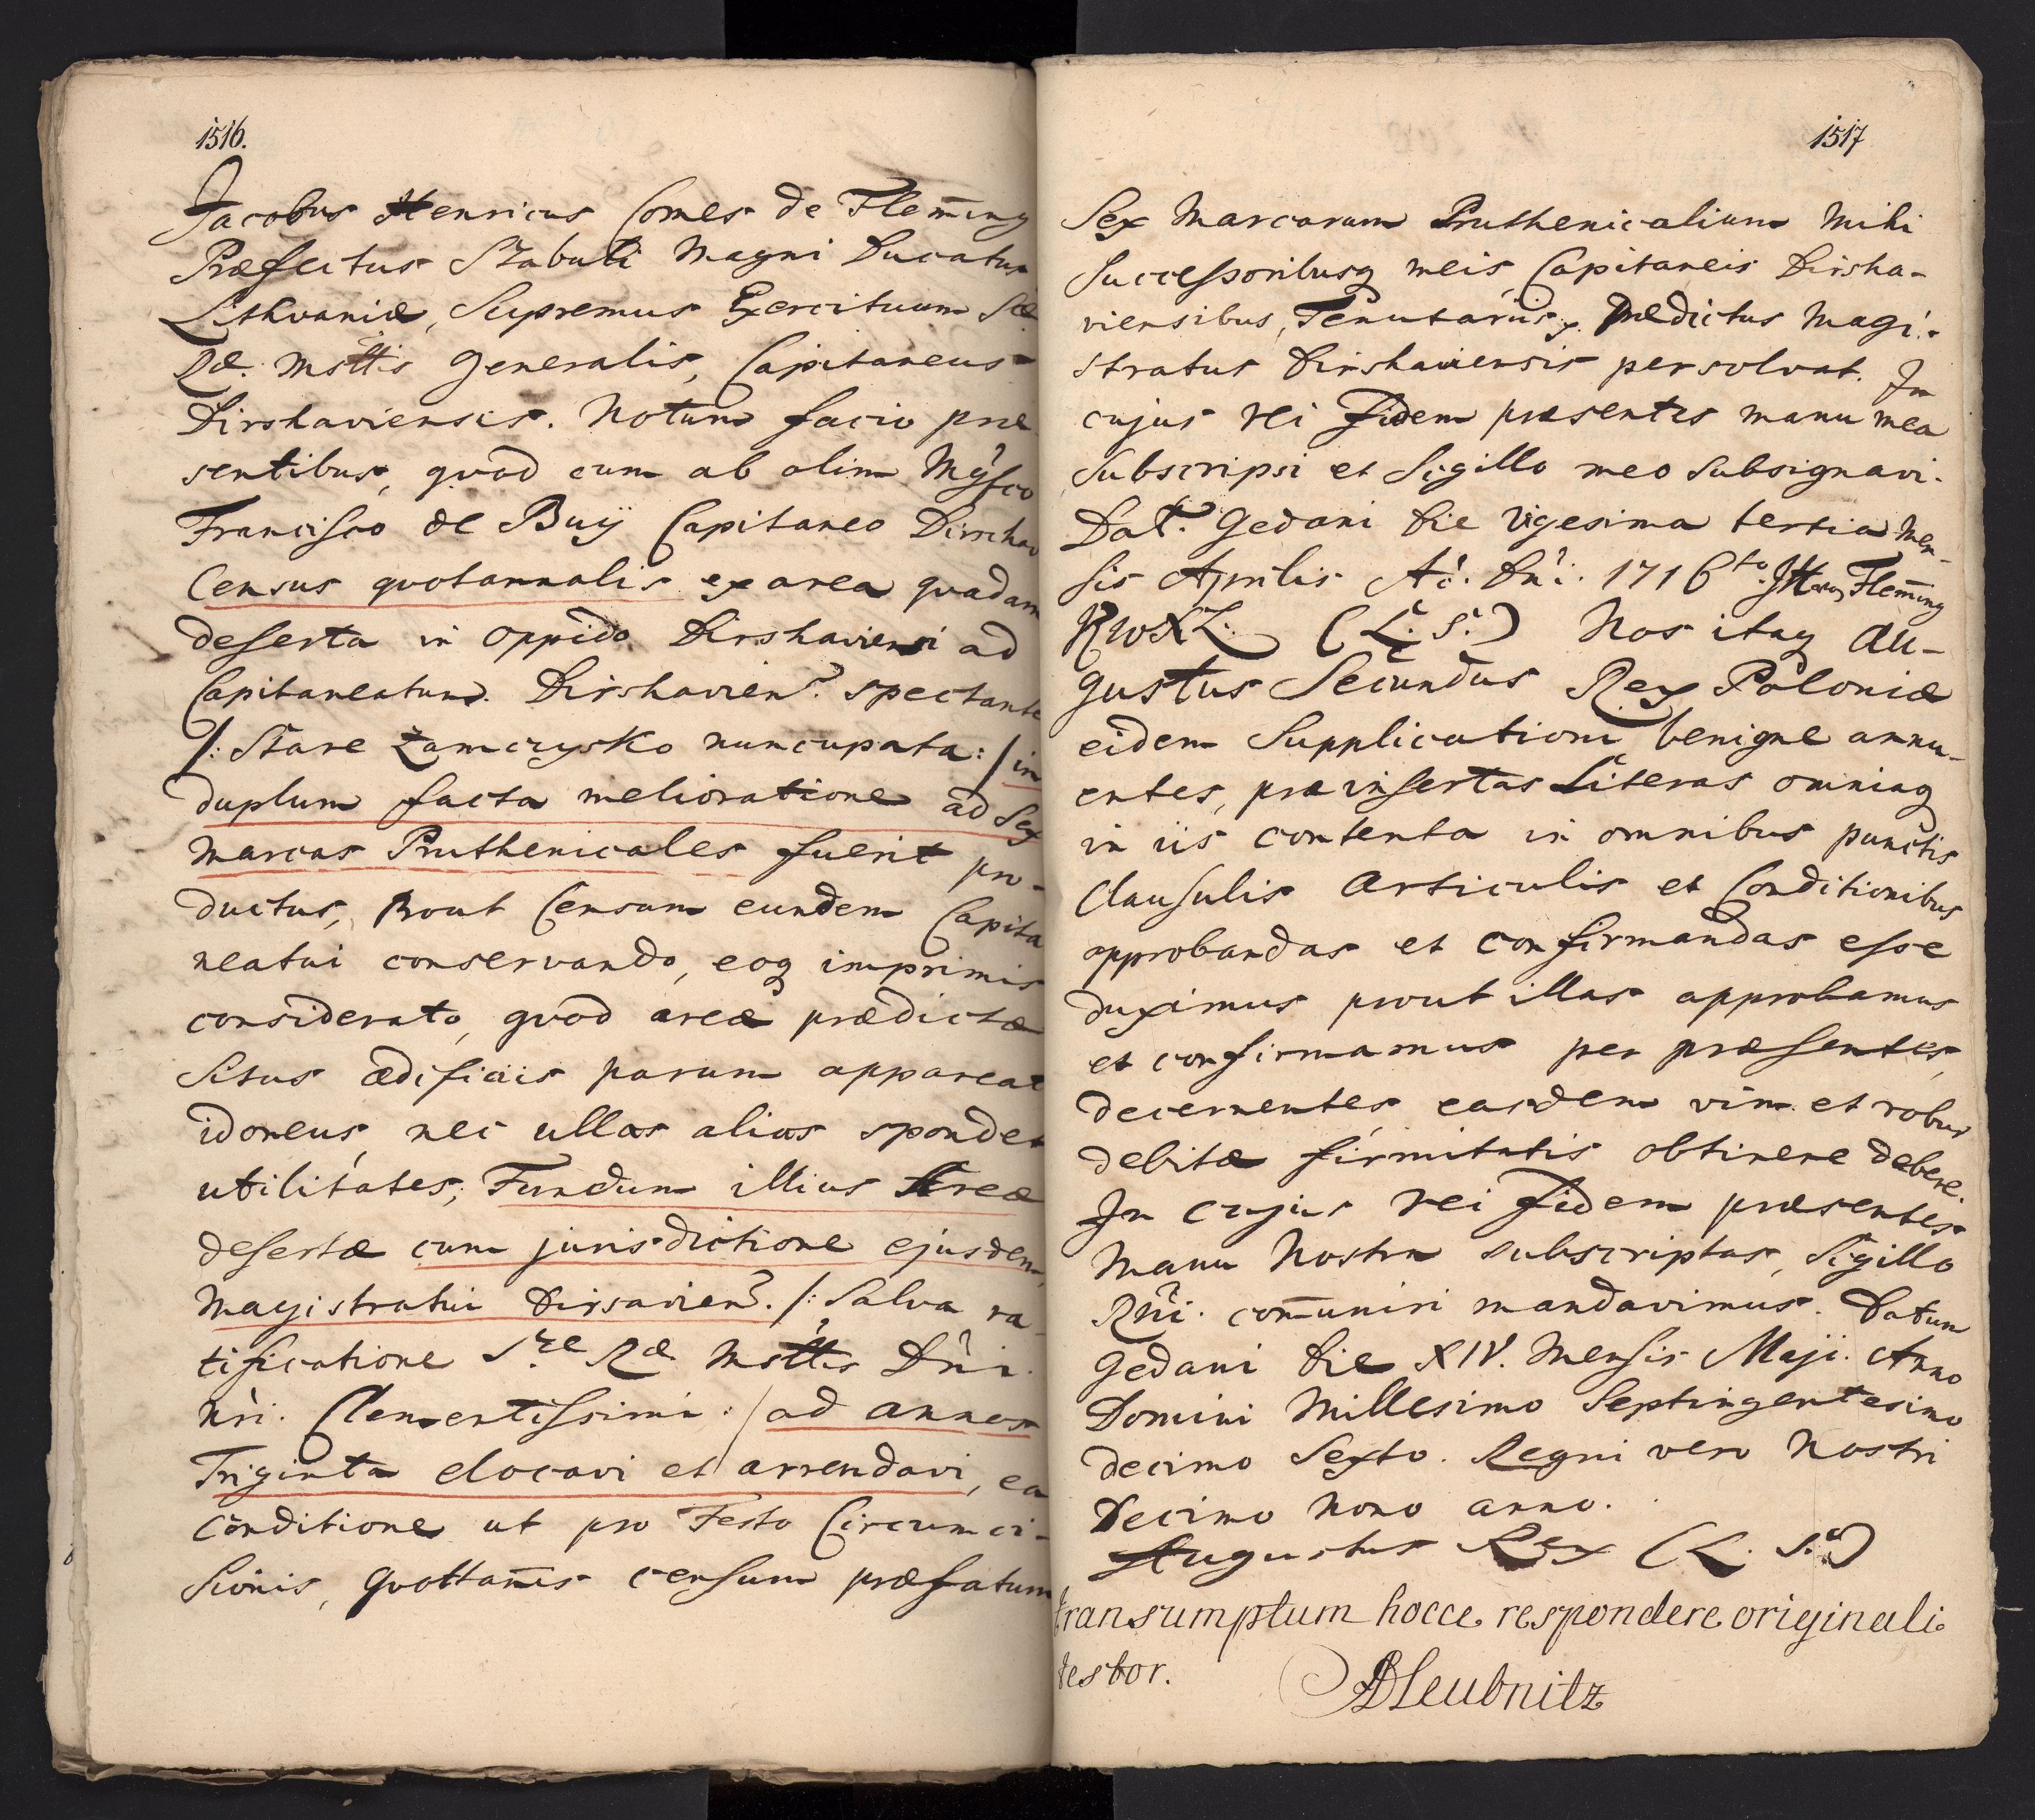 1516.
Jacobus Henricus Comes de Flem̄ing
Præfectus Stabuli Magni Ducatus
Lithvaniæ, Supremus Exercituum Sæ
Ræ. Msttis Generalis, Capitaneus
Dirshaviensis. Notum facio præ
sentibus, quod cum ab olim Mgfco
Francisco de Buÿ Capitaneo Dirschav
Census quotannalis ex area quadam
deserta in oppido Dirshaviensi ad
Capitaneatum. Dirshavien. spectante
/: Stare Zamczysko nuncupata: / in
duplum facta melioratione ad Sex
Marcas Pruthenicales fuerit pro-
ductus, Prout Censum eundem Capita
neatui conservando, eoq imprimis
considerato, quod areæ prædictæ
Situs ædificiis parum appareat
idoneus, nec ullas alias spondet
utilitates; Fundum illius Areæ
desertæ cum jurisdictione ejusdem,
Magistratui Dirsavien. /: Salva ra-
tificatione Sræ Ræ Msttis Dni.
Nri. Clementissimi: / ad annos
Triginta elocavi et arrendavi, ea
conditione ut pro Festo Circumci-
sionis, quottan̄is censum præfatum
1517
Sex Marcarum Pruthenicalium Mihi
Successoribusq meis Capitaneis Dirsha-
viensibus, Tenutariisq. Prædictus Magi-
stratus Dirshaviensis persolvat. In
cujus rei fidem præsentes manu mea
subscripsi et Sigillo meo subsignavi.
Dat. Gedani Die Vigesima tertia Men-
sis Aprilis Ao. Dni. 1716to. JH Flem̄ing
KWXL. (L. S.) Nos itaq Au-
gustus Secundus Rex Poloniæ
eidem Supplicationi benigne annu-
entes, præinsertas Literas omniaq
in iis contenta in omnibus punctis
Clausulis Articulis et Conditionibus
approbandas et confirmandas esse
duximus prout illas approbamus
et confirmamus per præsentes,
decernentes easdem vim et robur
debitæ firmitatis obtinere debere.
In cujus rei fidem præsentes
Manu Nostra subscriptas, Sigillo
Rni. com̄uniri mandavimus. Datum
Gedani Die XIV. Mensis Maji. Anno
Domini Millesimo Septingentesimo
decimo Sexto. Regni vero Nostri
Decimo Nono anno.
Augustus Rex (L. S.)
transumptum hocce respondere originali
testor. Leubnitz